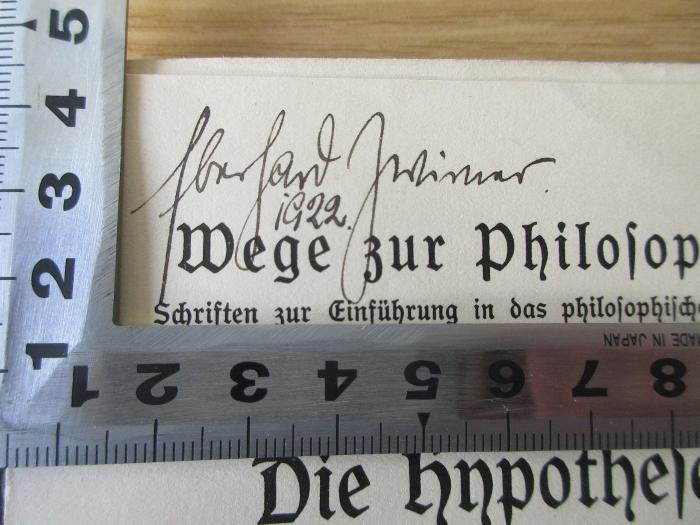 Eberhard Zwirner.
1922.
Wege zur Philosop
Schriften zur Einführung in das philosophische
MADE IN JAPAN
5
4
3
2
1
1 2 3 4 5 6 7 8
Die Hypothese